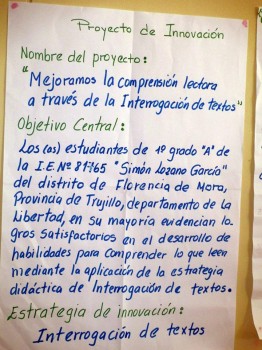 Proyecto de Innovación
Nombre del proyecto:
"Mejoramos la comprensión lectora
a través de la Interrogación de textos"
Objetivo Central:
Los (as) estudiantes de 1º grado "A" de
la I.E. Nº 81765 "Simón Lozano García"
del distrito de Florencia de Mora,
Provincia de Trujillo, departamento de La
Libertad, en su mayoría evidencian lo
gros Satisfactorios en el desarrollo de
habilidades para comprender lo que leen
mediante la aplicación de la estrategia
didáctica de Interrogación de textos.
Estrategia de innovación:
Interrogación de textos